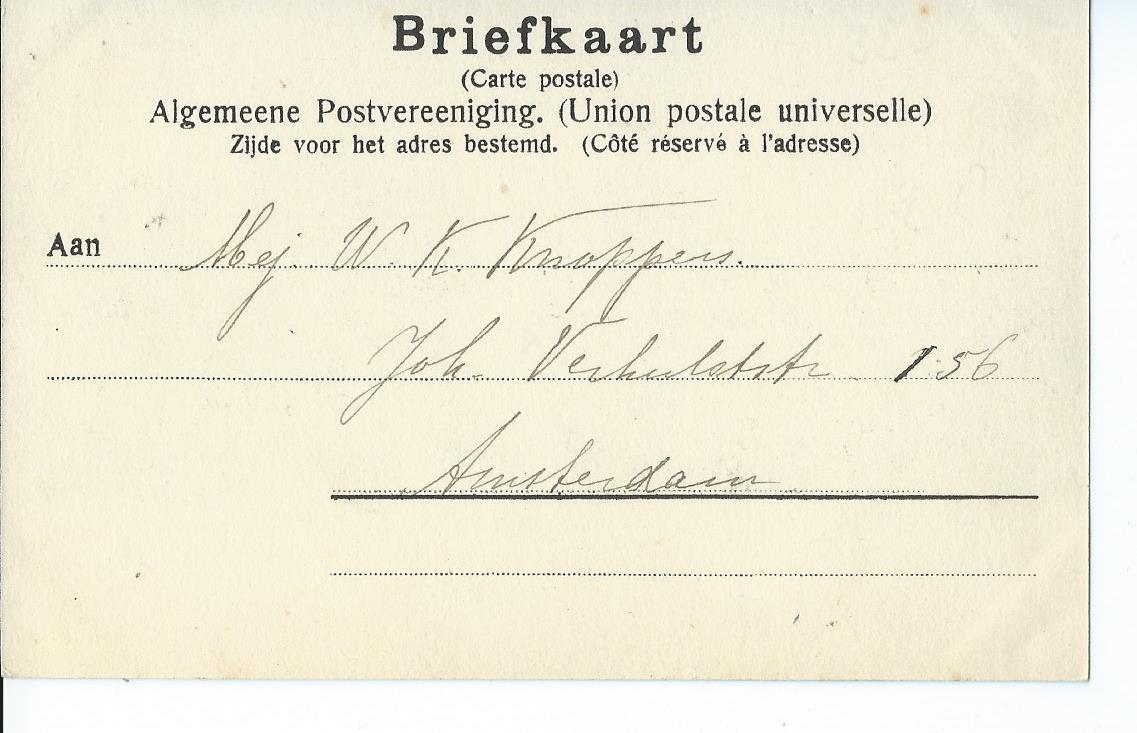 Briefkaart
(Carte postale)
Algemeene Postvereeniging. (Union postale universelle)
Zijde voor het adres bestemd. (Côté réservé à l'adresse)
Aan Mej. W. K. Knoppers.
Joh. Verhulststr. 156
Amsterdam